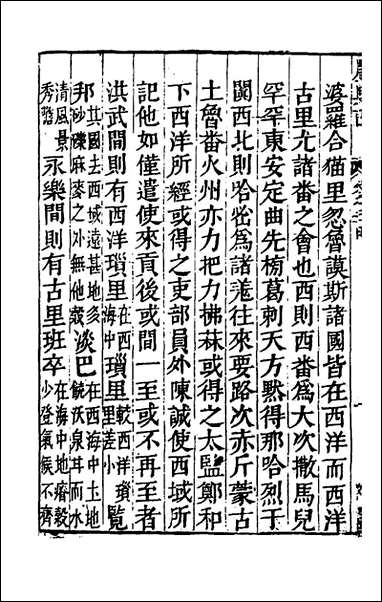 婆羅合猫里忽魯謨斯諸國皆在西洋而西洋
古里尤諸番之會也西則西番爲大次撒馬兒
罕罕東安定曲先榜葛剌天方黙得那哈烈于
闐西北則哈密爲諸羗往來要路次赤斤蒙古
土魯番火州亦力把力拂菻或得之太監鄭和
下西洋所經或得之吏部員外陳誠使西域所
記他如僅遣使來貢後或間一至或不再至者
洪武間則有西洋瑣里在西海中瑣里較西洋瑣里差小覽
邦其國去西域遠甚地多砂磧麻麥之外無他淡巴在西海中土地饒沃泉甘而水
清風景秀永樂間則有古里班卒在海中地瘠穀少登氣候不齊